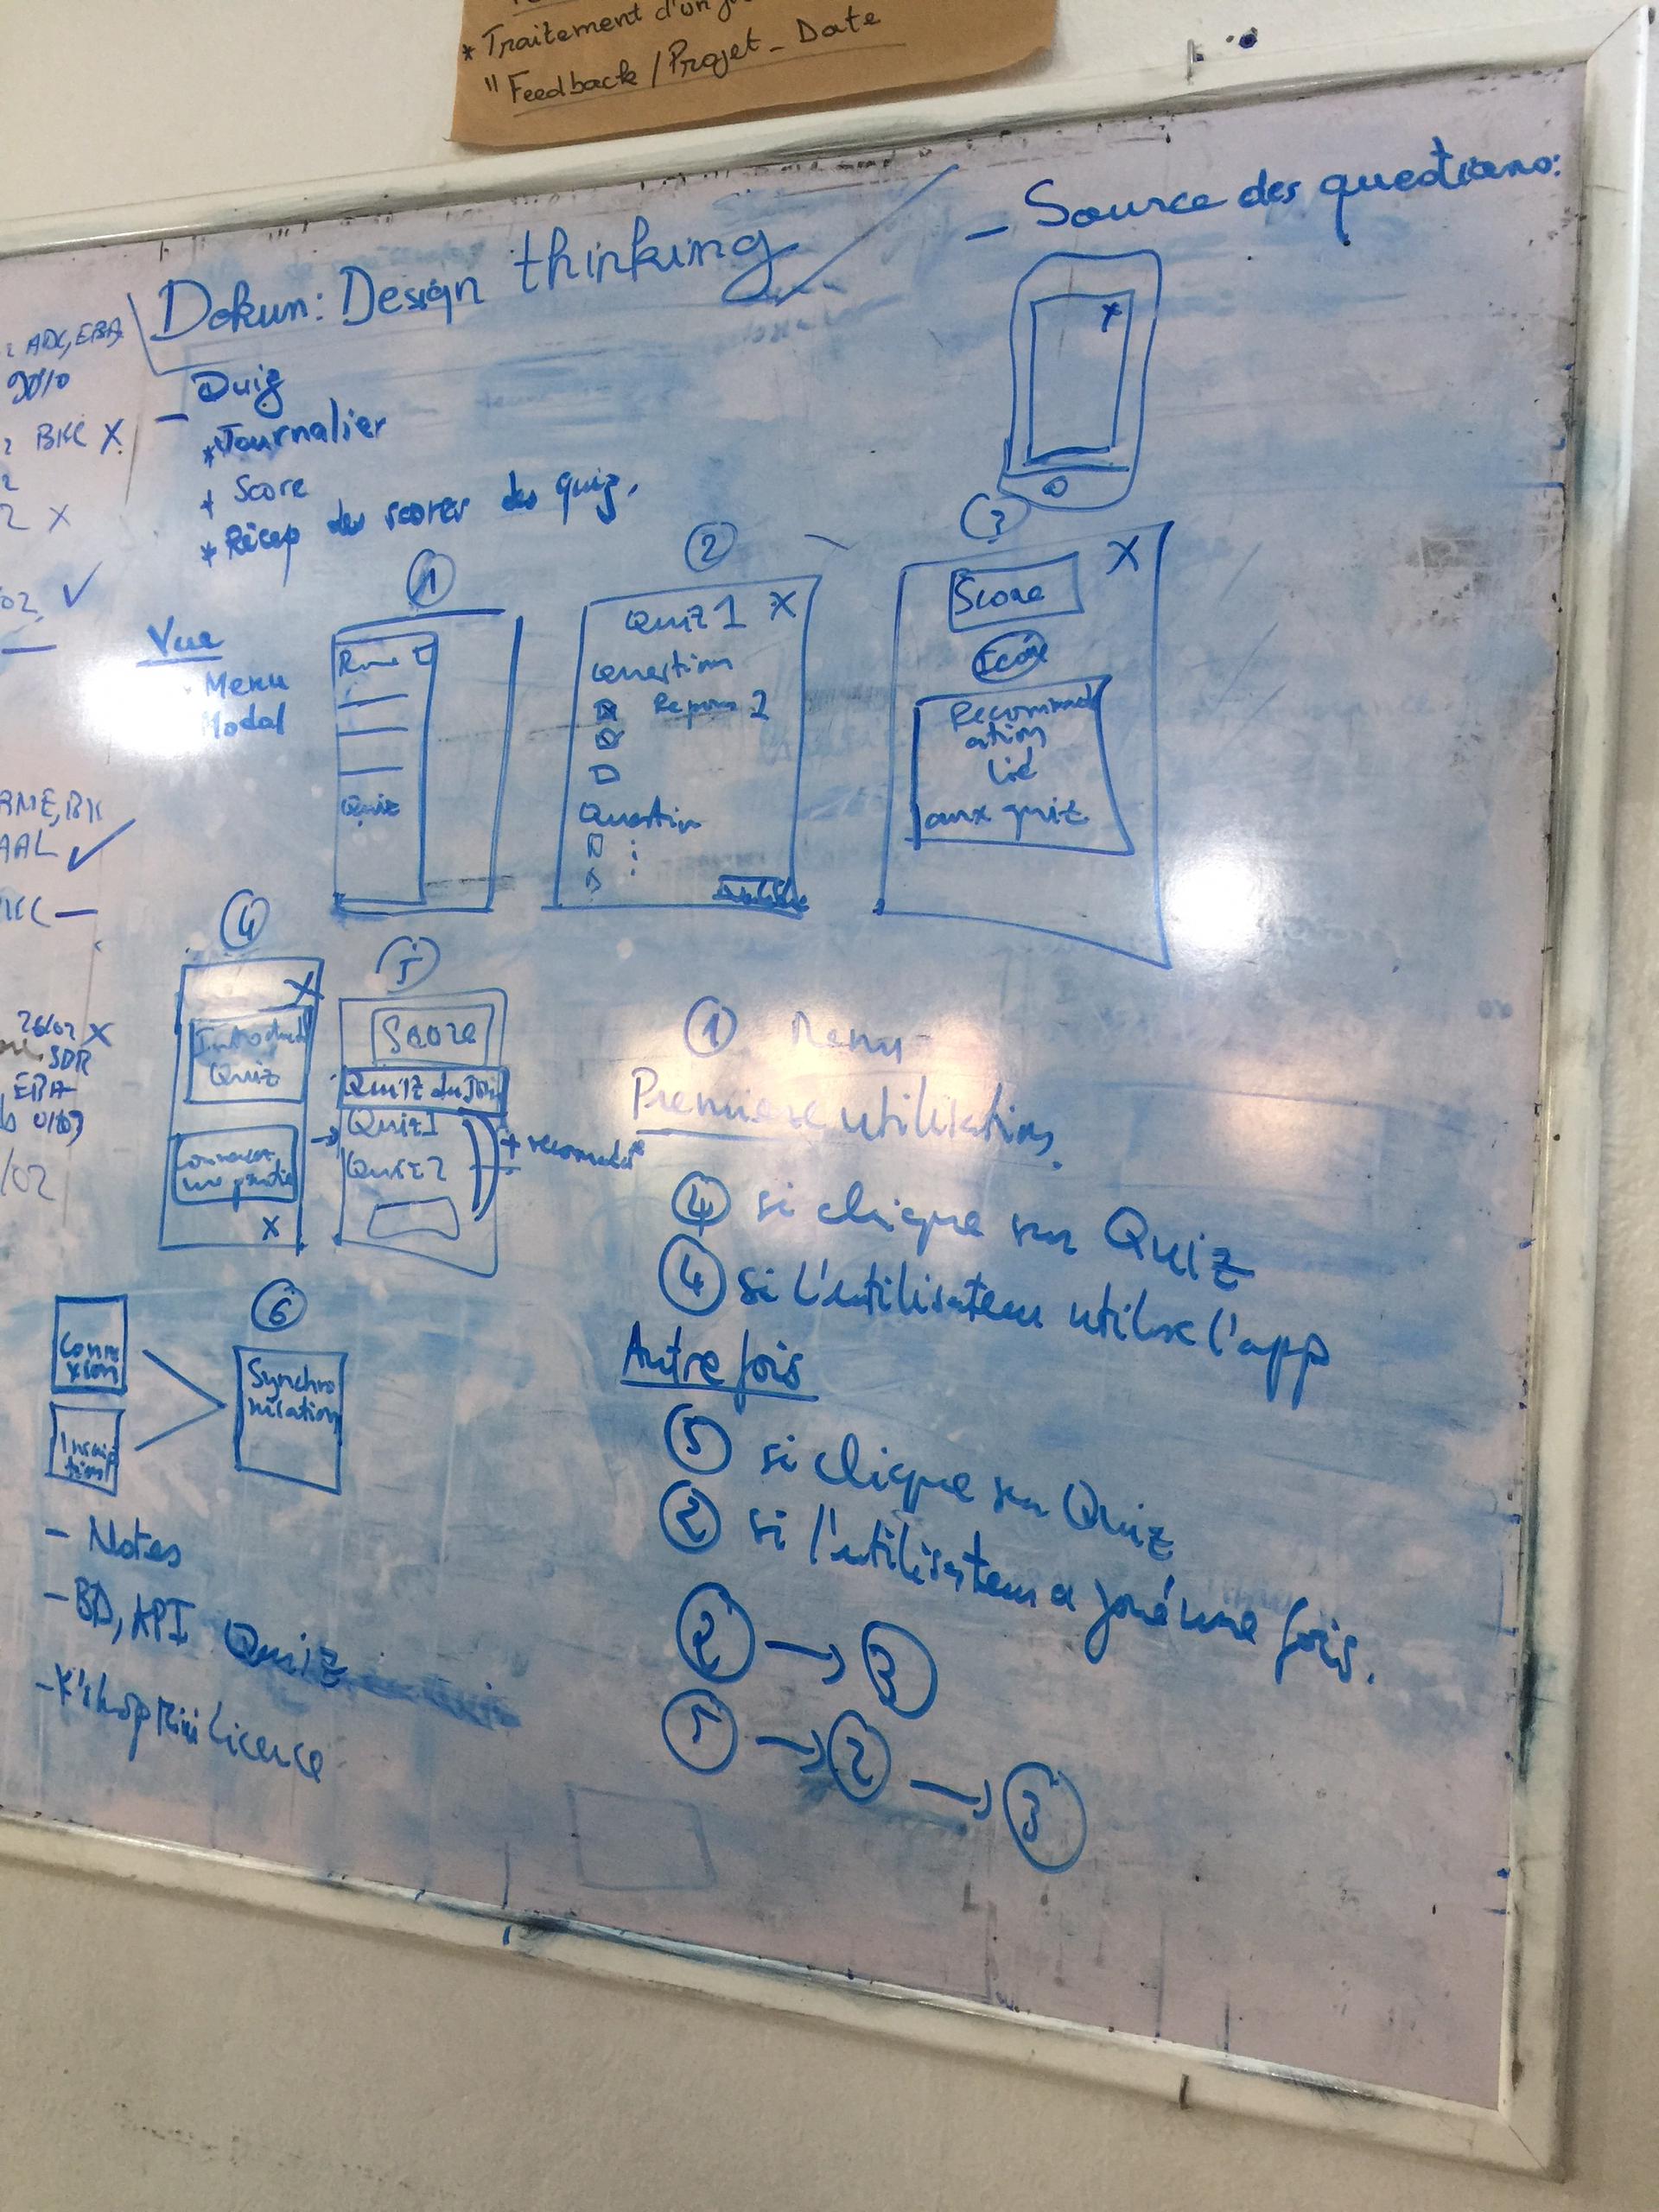 * Traitement d'un
" Feedback / Projet _ Date
Dokun: Design thinking
- Source des questions:
ADC, EBA
90%
BKC X
2 X
02 ✓
RME, BK
AAL ✓
KC -
26/02 X
SDR
EBA
/02
- Quiz
* Journalier
* Score
* Récap des scores des quiz.
Vue
Menu
Modal
1
Quiz
2
Quiz 1 X
Question
Repons 2
Question
3
X
Score
Recommend
ation
lié
aux quiz
4
X
Introduct
Quiz
une partie
X
5
Score
Quiz du Jour
Quiz 1
Quiz 2
+ recomandat°
Conne
xion
Inscrip
tion
6
Synchro
nisation
- Notes
- BD, API Quiz
1 Menu
Première utilisation.
4 si clique sur Quiz
4 si l'utilisateur utilise l'app
Autre fois
5 si clique sur Quiz
2 si l'utilisateur a joué une fois.
2 → 3
5 → 2 → 3